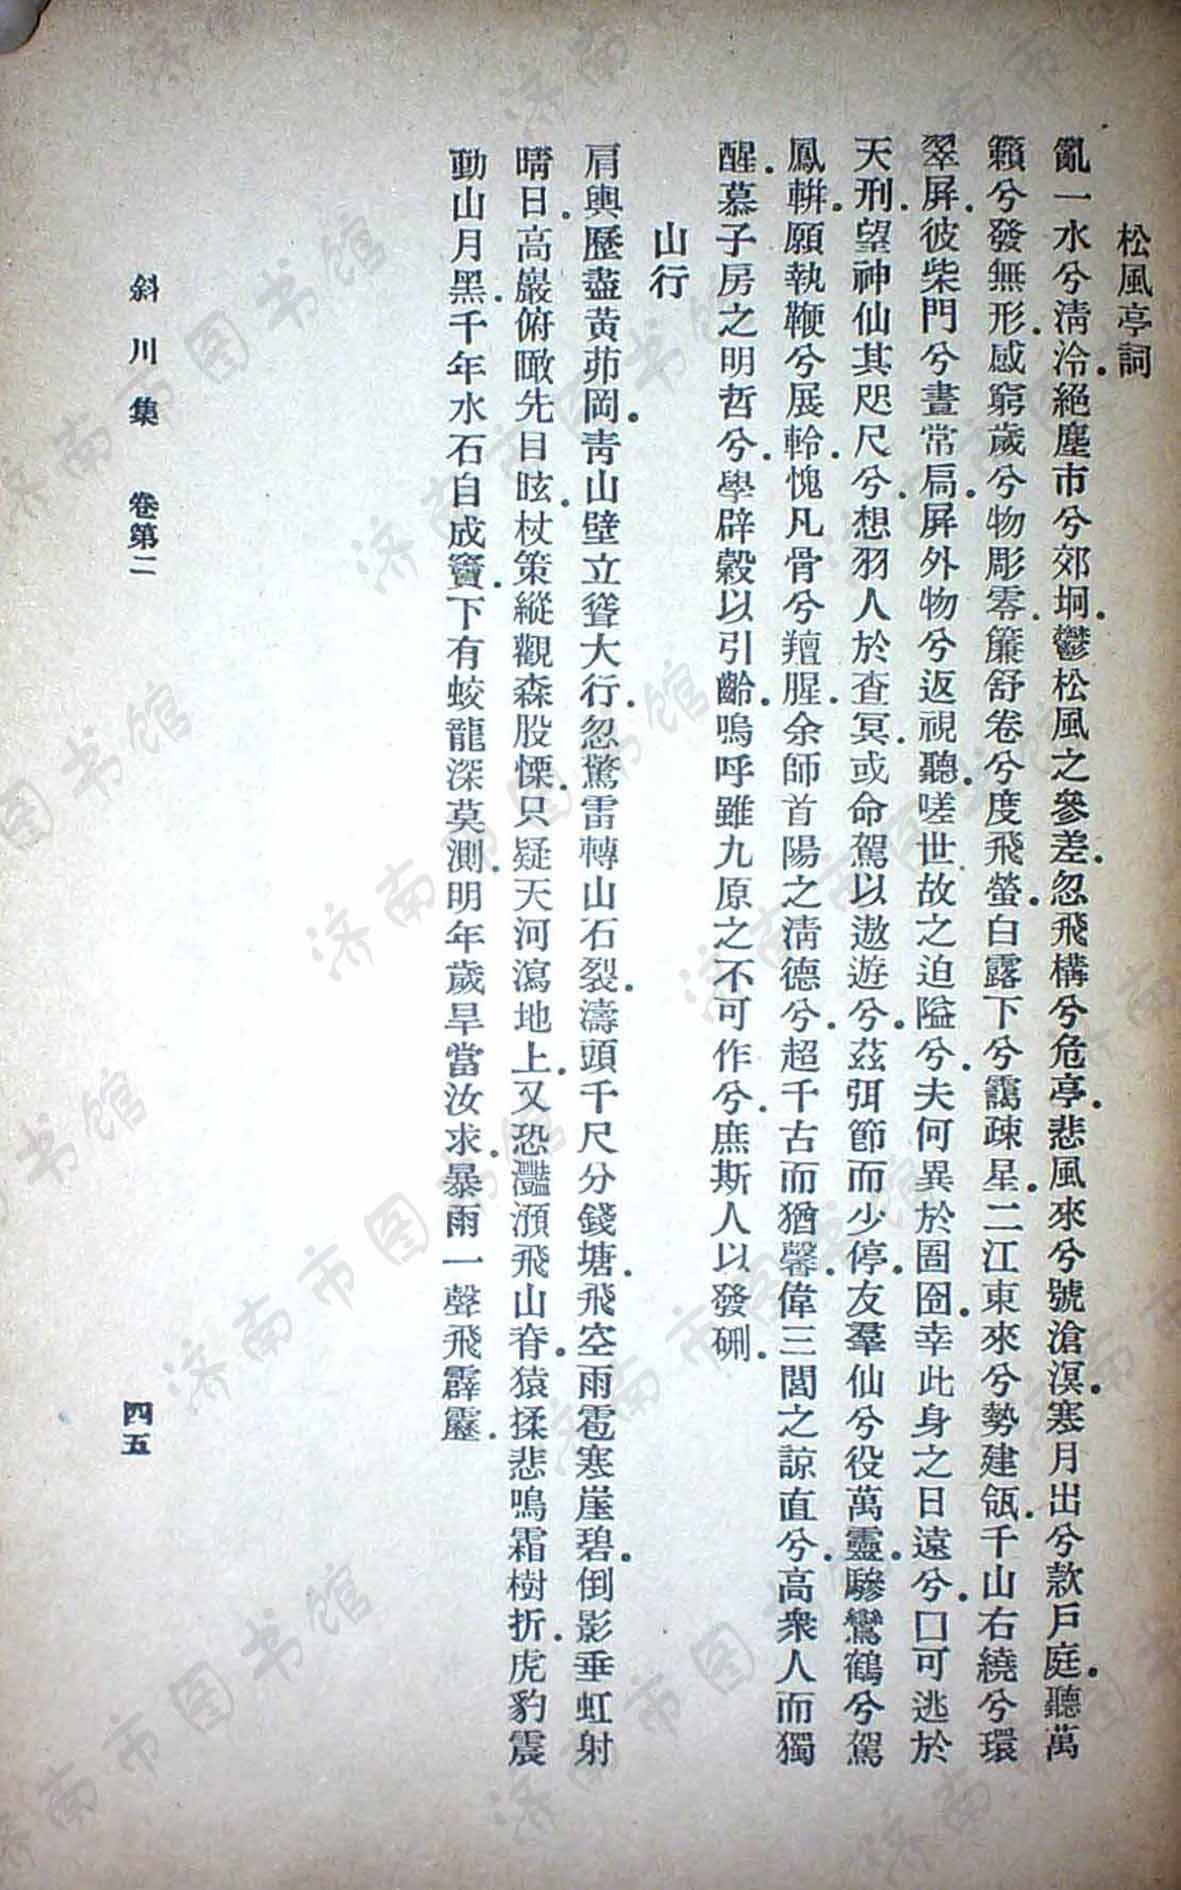 松風亭詞
亂一水兮淸泠。絕塵市兮郊坰。鬱松風之參差。忽飛構兮危亭。悲風來兮號滄溟。寒月出兮款戶庭。聽萬
籟兮發無形。感窮歲兮物彫零。簾舒卷兮度飛螢。白露下兮靄疎星。二江東來兮勢建瓴。千山右繞兮環
翠屏。彼柴門兮晝常扃。屏外物兮返視聽。嗟世故之迫隘兮。夫何異於圄囹。幸此身之日遠兮。囗可逃於
天刑。望神仙其咫尺兮。想羽人於查冥。或命駕以遨遊兮。茲弭節而少停。友羣仙兮役萬靈。驂鸞鶴兮駕
鳳輧。願執鞭兮展軨。愧凡骨兮羶腥。余師首陽之淸德兮。超千古而猶馨。偉三閭之諒直兮。高衆人而獨
醒。慕子房之明哲兮。學辟穀以引齡。嗚呼雖九原之不可作兮。庶斯人以發硎。
山行
肩輿歷盡黃茆岡。靑山壁立聳大行。忽驚雷轉山石裂。濤頭千尺分錢塘。飛空雨雹寒崖碧。倒影垂虹射
晴日。高巖俯瞰先目眩。杖策縱觀森股慄。只疑天河瀉地上。又恐灩澦飛山脊。猿揉悲鳴霜樹折。虎豹震
動山月黑。千年水石自成竇。下有蛟龍深莫測。明年歲旱當汝求。暴雨一聲飛霹靂。
斜川集 卷第二
四五
济南市图书馆